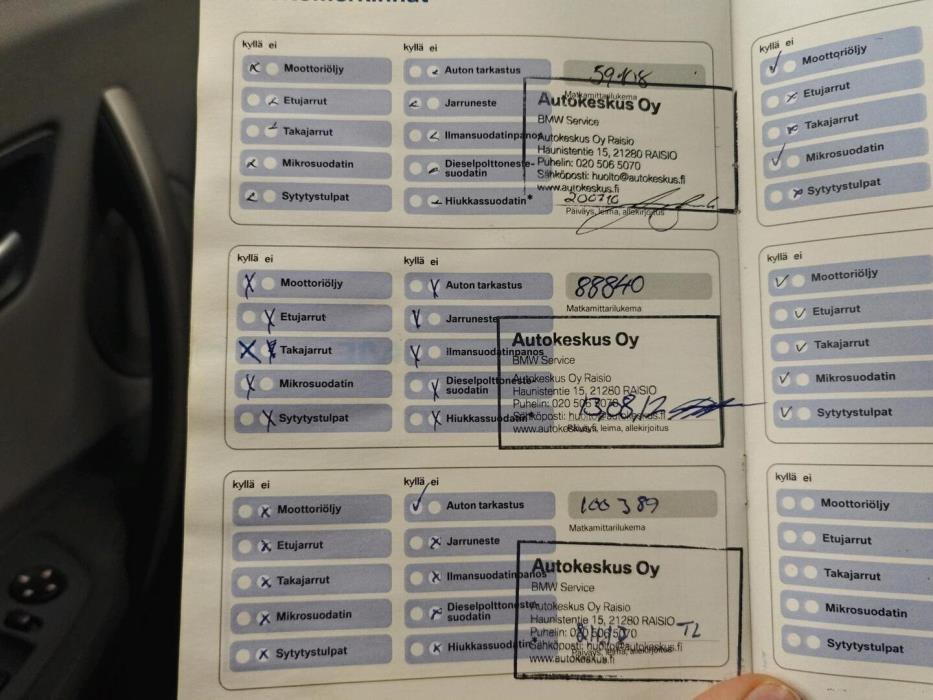 kyllä ei
Moottoriöljy
Etujarrut
Takajarrut
Mikrosuodatin
Sytytystulpat
kyllä ei
Auton tarkastus
Jarruneste
Ilmansuodatinpanos
Dieselpolttoneste-
suodatin
Hiukkassuodatin*
Matkamittarilukema
Autokeskus Oy
BMW Service
Autokeskus Oy Raisio
Haunistentie 15, 21280 RAISIO
Puhelin: 020 506 5070
Sähköposti: huolto@autokeskus.fi
www.autokeskus.fi
200710
Päiväys, leima, allekirjoitus
kyllä ei
Moottoriöljy
Etujarrut
Takajarrut
Mikrosuodatin
Sytytystulpat
kyllä ei
Auton tarkastus
Jarruneste
Ilmansuodatinpanos
Dieselpolttoneste-
suodatin
Hiukkassuodatin*
88840
Matkamittarilukema
Autokeskus Oy
BMW Service
Autokeskus Oy Raisio
Haunistentie 15, 21280 RAISIO
Puhelin: 020 506 5070
Sähköposti: huolto@autokeskus.fi
www.autokeskus.fi
Päiväys, leima, allekirjoitus
kyllä ei
Moottoriöljy
Etujarrut
Takajarrut
Mikrosuodatin
Sytytystulpat
kyllä ei
Auton tarkastus
Jarruneste
Ilmansuodatinpanos
Dieselpolttoneste-
suodatin
Hiukkassuodatin*
100 389
Matkamittarilukema
Autokeskus Oy
BMW Service
Autokeskus Oy Raisio
Haunistentie 15, 21280 RAISIO
Puhelin: 020 506 5070
TL
Sähköposti: huolto@autokeskus.fi
www.autokeskus.fi
Päiväys, leima, allekirjoitus
kyllä ei
Moottoriöljy
Etujarrut
Takajarrut
Mikrosuodatin
Sytytystulpat
kyllä ei
Moottoriöljy
Etujarrut
Takajarrut
Mikrosuodatin
Sytytystulpat
kyllä ei
Moottoriöljy
Etujarrut
Takajarrut
Mikrosuodatin
Sytytystulpat